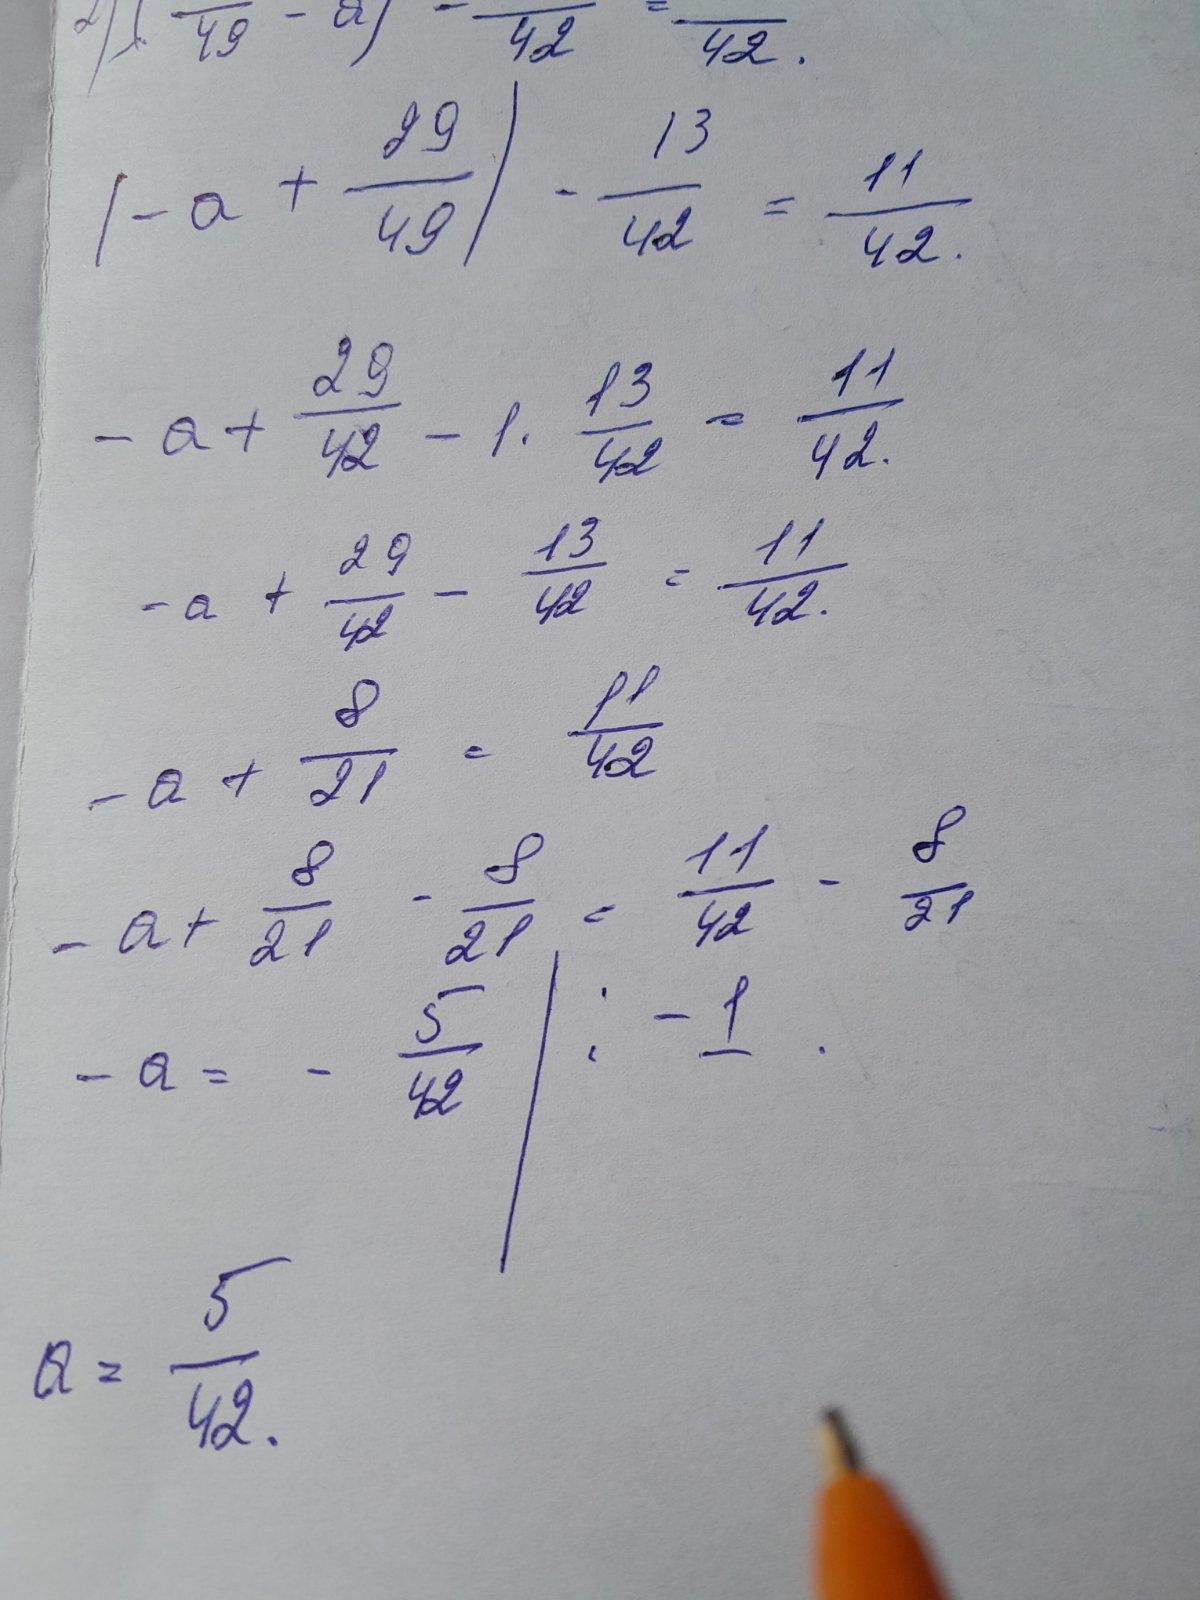 2) ( /49 - a) - /42 = /42.
(-a + 29/49) - 13/42 = 11/42.
-a + 29/42 - 1. 13/42 = 11/42.
-a + 29/42 - 13/42 = 11/42.
-a + 8/21 = 11/42
-a + 8/21 - 8/21 = 11/42 - 8/21
-a = - 5/42 | : -1 .
a = 5/42.